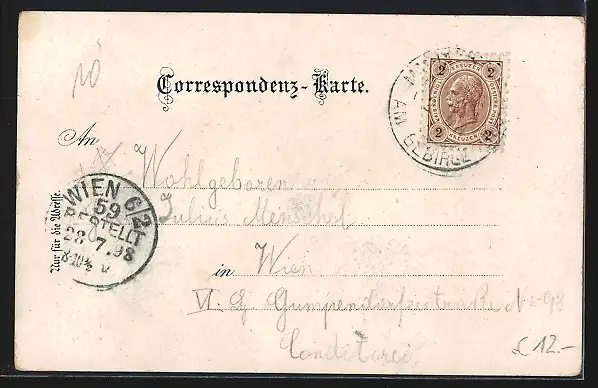 10
Correspondenz-Karte.
2 KREUZER 2
2 2
AM GEBIRGE
An
Wohlgeboren
Julius Menschel
in Wien
VI. Gumpendorferstraße No 98
Conditorei
Nur für die Adresse.
WIEN 6/2
59
BESTELLT
28 7.98
8-10½ V
£ 12.-